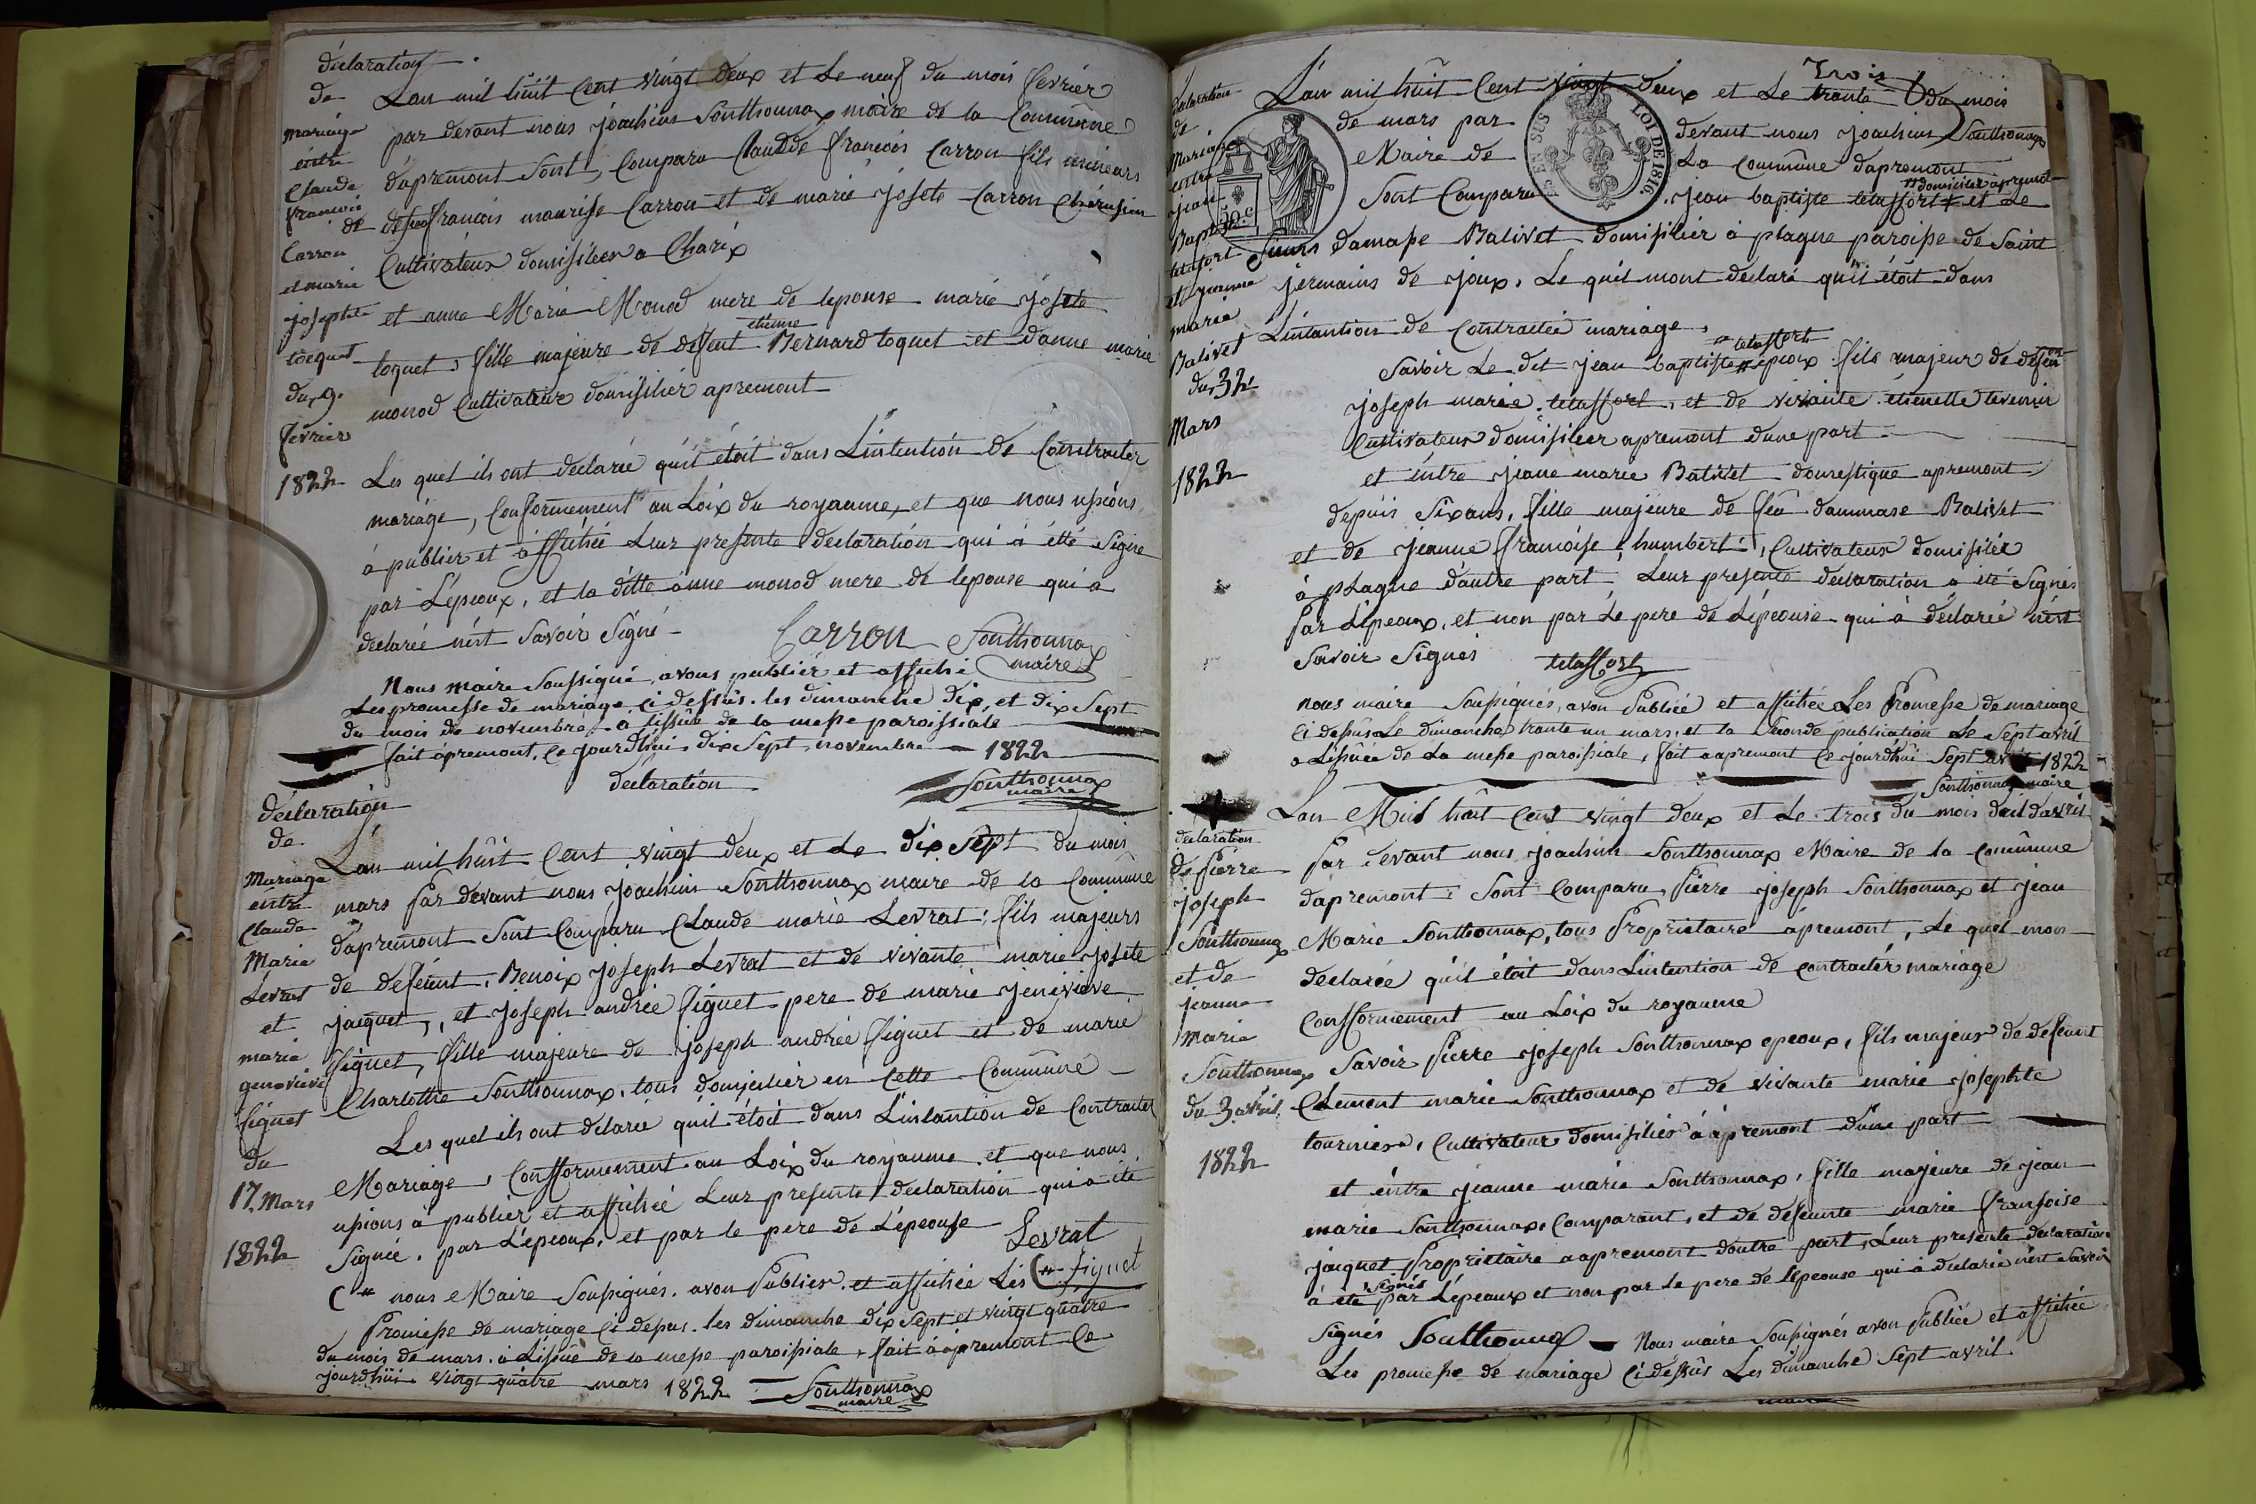 déclaration
de
mariage
entre
Claude
francois
Carron
et marie
josephte
tocquet
du 9.
fevrier
1822
Lan mil huit Cent vingt deux et Le neuf du mois fevrier
par devant nous joachim Sonthonnax maire de la Commune
dapremont Sont Comparu Claudde francois Carron fils mineurs
de defeu francois maurise Carron et de marie josete Carron
Cultivateur domisilier a Charix
et anne Marie Monod mere de lepouse marie josete
etienne
toquet, fille majeure de defeut Bernard toquet et danne marie
monod Cultivateur domisilier apremont
Les quel ils ont declarée qu'il étoit dans L'intention de Contracter
mariage, Conformement au Loix du royaume, et que nous
à publier et affichée Leur presente declaration qui à été Signe
par L'epeoux, et la ditte anne monod mere de lepouse qui à
declarée n'est Savoir Signé
Carron Sonthonnax
maire
Nous maire Soussigné, avons publier et affiché
Les promesse de mariage Ci dessus. les dimanche dix, et dix Sept
du mois de novembre, a lissüe de la messe paroissiale
fait apremont, Ce jourdhui dix Sept novembre 1822
déclaration
Sonthonnax
maire
déclaration
de
Mariage
entre
Claude
Marie
Levrat
et
marie
genevieve
figuet
du
17. Mars
1822
Lan mil huit Cent vingt deux et Le dix Sept du mois
mars par devant nous joachim Sonthonnax maire de la Commune
dapremont Sont Comparu Claude marie Levrat, fils majeurs
de defeunt, Benoix joseph Levrat et de vivante marie josete
jacquet, et joseph andrée figuet pere de marie jenevieve
figuet, fille majeure de joseph andrée figuet et de marie
Charlotte Sonthonnax, tous domicilier en Cette Commune
Les quel ils ont delarée qu'il étoit dans L'intantion de Contracter
Mariage, Confformement au Loix du royaume, et que nous
usions à publier et affichée Leur presente declaration qui a été
Signée, par L'epeoux, et par le pere de L'epeouse Levrat
figuet
nous Maire Soussignés, avon Publier et affichée Les
Promesse de mariage Ci desus. les dimanche dix Sept et vingt quatre
du mois de mars. à Lissüe de la messe paroissiale, fait à apremont Ce
jourdhui vingt quatre mars 1822 Sonthonnax
maire
declaration
de
Mariage
entre
jean
Baptiste
letaffort
et jeanne
marie
Balivet
du 31
Mars
1822
Trois
L'an mil huit Cent vingt deux et Le trante du mois
de mars par devant nous joachim Sonthonnax
Maire de La Commune dapremont
domicilier apremont
Sont Comparu jean baptiste letaffort et Le
EN SUS
LOI DE 1816.
Sieurs Damasse Balivet domisilier à plagne paroisse de Saint
jermains de joux, Le quil mont declaré qu'il étoit dans
Lintantion de Contractée mariage
letaffort
Savoir Le dit jean baptiste épeoux fils majeur de defeu
joseph marie letaffort, et de vivante etienette
Cultivateur domisilier apremont dune part
et entre jeane marie Balivet domestique apremont
depuis Six ans, fille majeure de feu dammase Balivet
et de jeanne francoise humbert, Cultivateur domisilée
à plagne dautre part, Leur presente declaration a été Signés
par L'epeoux, et non par Le pere de L'epeouse qui à declarée n'est
Savoir Signés letaffort
nous maire Soussignés, avon Publiée et affichée Les Promesse de mariage
Ci desus Le dimanche trante un mars, et la Seconde publication Le Sept avril
a Lissuée de La messe paroissiale, fait a apremont Ce jourdhui Sept avril 1822
Sonthonnax maire
declaration
de Pierre
joseph
Sonthonnax
et de
jeanne
Marie
Sonthonnax
du 3 avril
1822
Lan Mil huit Cent vingt deux et Le trois du mois davril
par devant nous joachim Sonthonnax Maire de la Commune
dapremont Sont Comparu, Pierre joseph Sonthonnax et jean
Marie Sonthonnax, tous Proprietaire apremont, Le quel mon
declarée qu'il étoit dans L'intention de contracter mariage
Confformement au Loix du royaume
Savoir Pierre joseph Sonthonnax epeoux, fils majeur de defeunt
Clement marie Sonthonnax et de vivante marie josephte
tournier, Cultivateur domisilier à apremont dune part
et entre jeanne marie Sonthonnax, fille majeure de jean
marie Sonthonnax Comparant, et de defeunte marie Fransoise
jacquet Proprietaire a apremont dautre part, Leur presente declaration
signés
à été par L'epeaux et non par le pere de l'epeouse qui à declarée n'est Savoir
Signés Sonthonnax Nous maire Soussignés avon Publiée et affichée
Les promesse de mariage Ci dessus Les dimanche Sept avril
maire